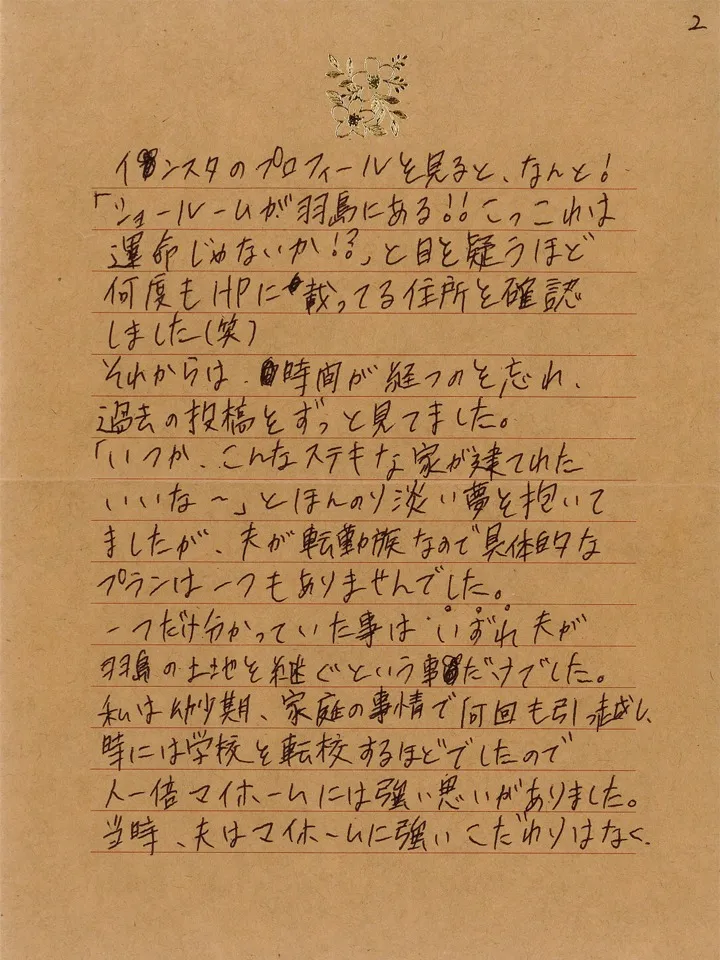 2
インスタのプロフィールを見ると、なんと!
「ショールームが羽島にある!!こっこれは
運命じゃないか!?」と目を疑うほど
何度もHPに載ってる住所を確認
しました(笑)
それからは、時間が経つのを忘れ、
過去の投稿をずっと見てました。
「いつか、こんなステキな家が建てれた
いいな〜」とほんのり淡い夢を抱いて
ましたが、夫が転勤族なので具体的な
プランは一つもありませんでした。
一つだけ分かっていた事はいずれ夫が
羽島の土地を継ぐという事だけでした。
私は幼少期、家庭の事情で何回も引っ越し、
時には学校を転校するほどでしたので
人一倍マイホームには強い思いがありました。
当時、夫はマイホームに強いこだわりはなく、